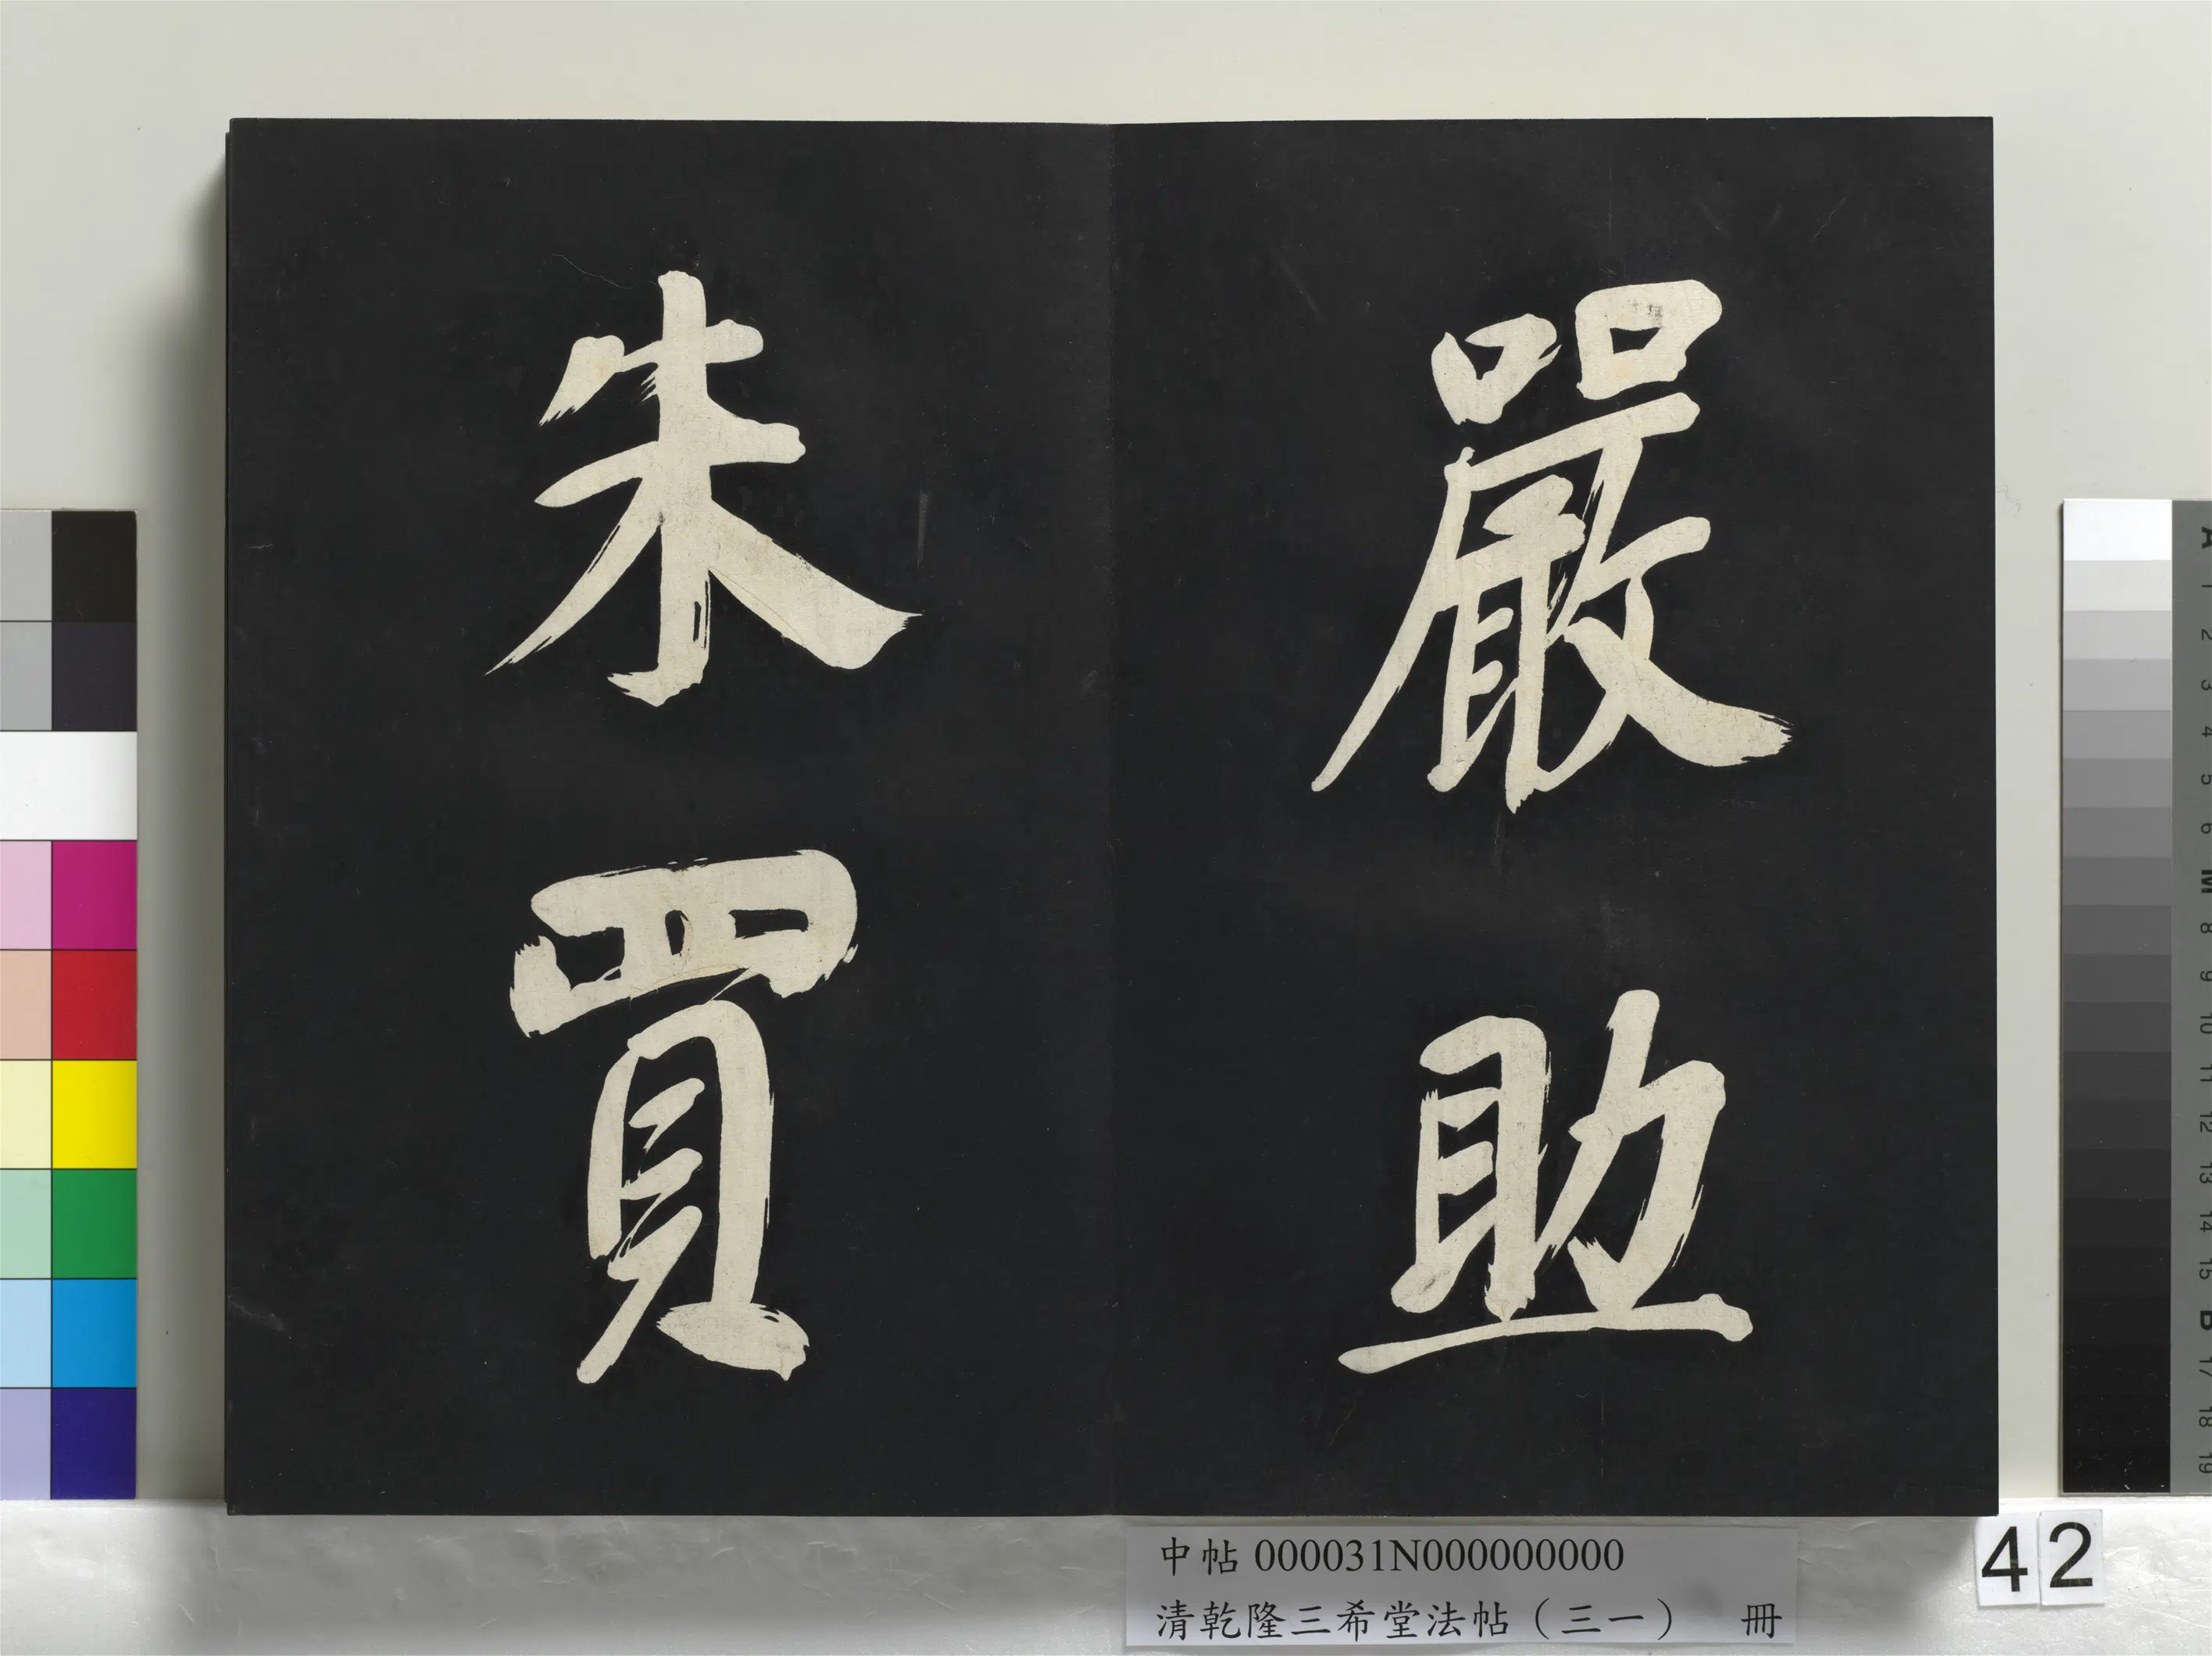 嚴助
朱買
中帖 000031N000000000
清乾隆三希堂法帖（三一） 冊
42
A
1
2
3
4
5
6
M
8
9
10
11
12
13
14
15
B
17
18
19